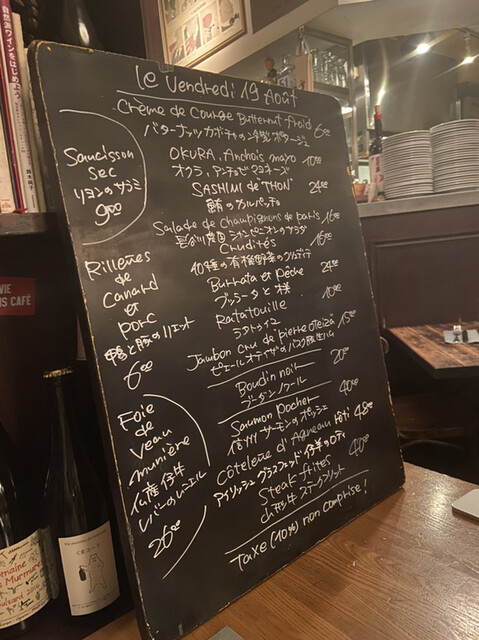 Le Vendredi 19 Août
Crème de Courge Butternut froid
バターナッツカボチャの冷製ポタージュ
600
OKURA, Anchois mayo
オクラ、アンチョビマヨネーズ
1000
SASHIMI de "THON"
鮪のカルパッチョ
2400
Salade de Champignons de paris
長谷川農園マッシュルームのサラダ
1600
Crudités
40種の有機野菜のクリュディテ
1600
Burrata et pêche
ブッラータと桃
2400
Ratatouille
ラタトゥイユ
1000
Jambon cru de pierre oteiza
ピエール オテイザのバスク豚生ハム
1500
Boudin noir
ブーダンノワール
2000
Saumon Pocher
信州サーモンのポシェ
4000
Côtelette d'Agneau Rôti
アイリッシュグラスフェッド仔羊のロティ
4800
Steak frites
山形牛ステークフリット
4000
Taxe (10%) non comprise!
Saucisson
sec
リヨンのサラミ
900
Rillettes
de
Canard
et
porc
鴨と豚のリエット
600
Foie
de
veau
munière
仏産仔牛
レバーのムニエル
2600
自然派ワインをはじめよう
VIE
IS CAFÉ
maine
Murmure